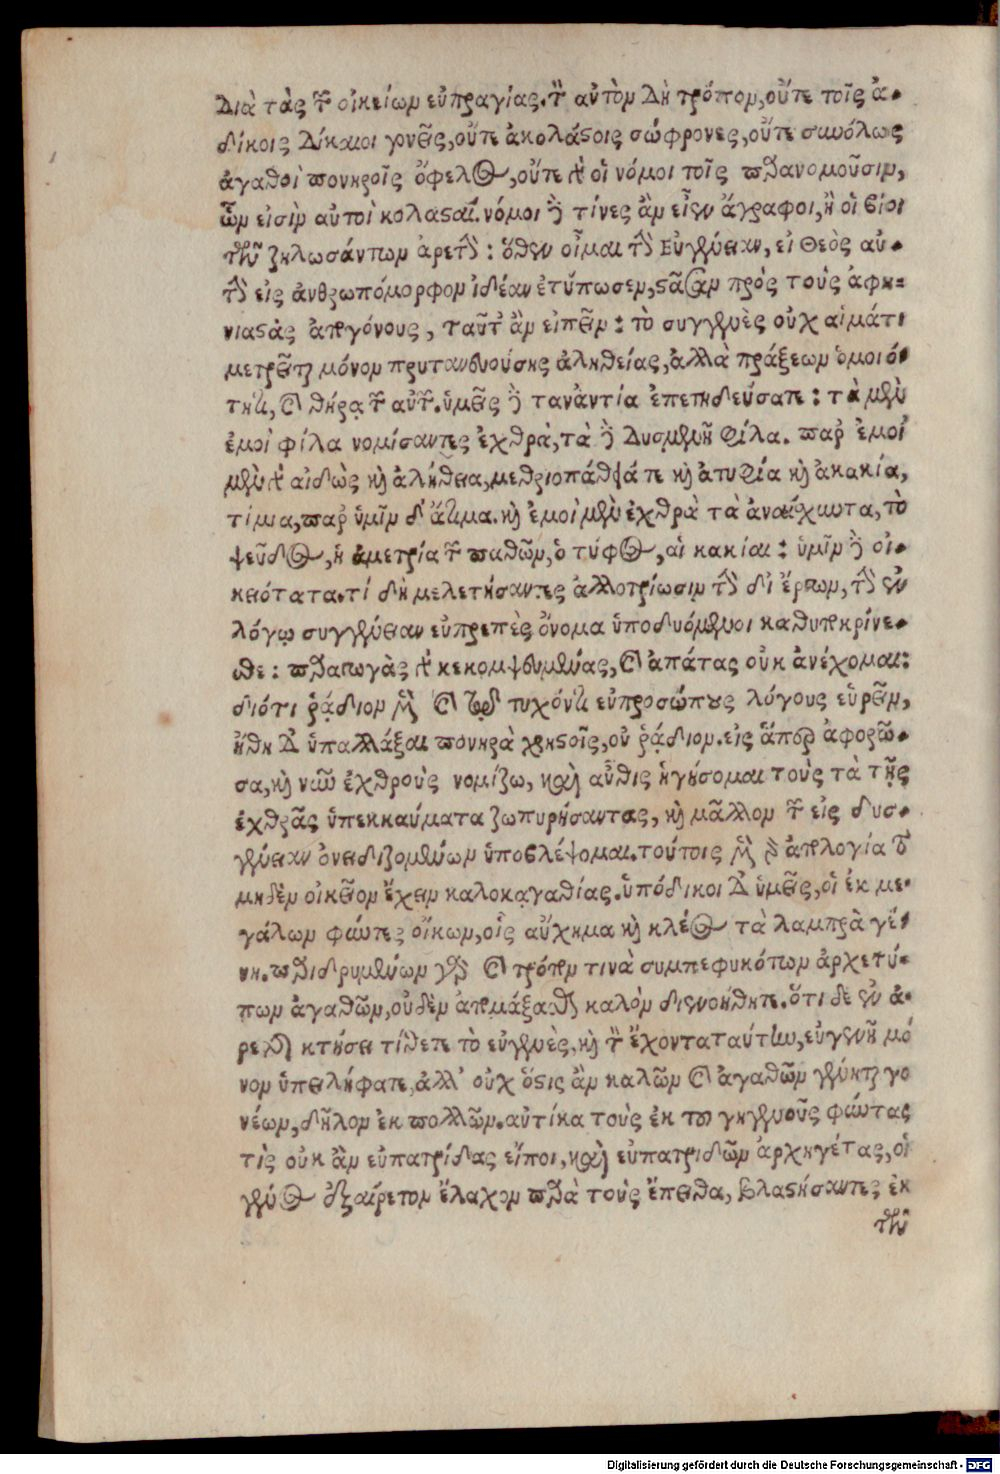 διὰ τὰς τῶν οἰκείων εὐπραγίας. τὸν αὐτὸν δὴ τρόπον, οὔτε τοῖς ἀ-
δίκοις δίκαιοι γονεῖς, οὔτε ἀκολάστοις σώφρονες, οὔτε συνόλως
ἀγαθοὶ πονηροῖς ὄφελος, οὔτε γὰρ οἱ νόμοι τοῖς παρανομοῦσιν,
ὧν εἰσὶν αὐτοὶ κολασταί. νόμοι δὲ τίνες ἂν εἶεν ἄγραφοι, ἢ οἱ βίοι
τῶν ζηλωσάντων ἀρετήν: ὅθεν οἶμαι τὴν Εὐγένειαν, εἰ Θεὸς αὐ-
τὴν εἰς ἀνθρωπόμορφον ἰδέαν ἐτύπωσεν, στᾶσαν πρὸς τοὺς ἀφη-
νιαστὰς ἀπογόνους, ταῦτ' ἂν εἰπεῖν: τὸ συγγενὲς οὐχ αἱμάτι
μετρεῖται μόνον πρυτανευούσης ἀληθείας, ἀλλὰ πράξεων ὁμοιό-
τητι, καὶ θήρᾳ τῶν αὐτῶν. ὑμεῖς δὲ τἀναντία ἐπετηδεύσατε: τὰ μὲν
ἐμοὶ φίλα νομίσαντες ἐχθρὰ, τὰ δὲ δυσμενῆ φίλα. παρ' ἐμοὶ
μὲν γὰρ αἰδὼς καὶ ἀλήθεια, μετριοπάθειά τε καὶ ἀτυφία καὶ ἀκακία,
τίμια, παρ' ὑμῖν δ' ἄτιμα. καὶ ἐμοὶ μὲν ἐχθρὰ τὰ ἀναίσχυντα, τὸ
ψεῦδος, ἡ ἀμετρία τῶν παθῶν, ὁ τύφος, αἱ κακίαι: ὑμῖν δὲ οἰ-
κειότατα. τί δὴ μελετήσαντες ἀλλοτρίωσιν τὴν δι' ἔργων, τὴν ἐν
λόγῳ συγγένειαν εὐπρεπὲς ὄνομα ὑποδυόμενοι καθυποκρίνε-
σθε: παραγωγὰς γὰρ κεκομψευμένας, καὶ ἀπάτας οὐκ ἀνέχομαι:
διότι ῥᾴδιον μὲν καὶ τοῖς τυχόντι εὐπροσώπους λόγους εὑρεῖν,
ἤθη δὲ ὑπαλλάξαι πονηρὰ χρηστοῖς, οὐ ῥᾴδιον. εἰς ἅπερ ἀφορῶ-
σα, καὶ νῦν ἐχθροὺς νομίζω, καὶ αὖθις ἡγήσομαι τοὺς τὰ τῆς
ἐχθρᾶς ὑπεκκαύματα ζωπυρήσαντας, καὶ μᾶλλον τῶν εἰς δυσ-
γένειαν ὀνειδιζομένων ὑποβλέψομαι. τούτοις μὲν γὰρ ἀπολογία τὸ
μηδὲν οἰκεῖον ἔχειν καλοκᾳγαθίας. ὑπόδικοι δὲ ὑμεῖς, οἱ ἐκ με-
γάλων φύντες οἴκων, οἷς αὔχημα καὶ κλέος τὰ λαμπρὰ γέ-
νη. παριδρυμένων γὰρ καὶ τρόπον τινὰ συμπεφυκότων ἀρχετύ-
πων ἀγαθῶν, οὐδὲν ἀπομάξασθαι καλὸν διενοήθητε. ὅτι δὲ ἐν ἀ-
ρετῆς κτήσει τίθεται τὸ εὐγενὲς, καὶ τὸν ἔχοντα ταύτην, εὐγενῆ μό
νον ὑπείληφεν, ἀλλ' οὐχ ὅστις ἂν καλῶν καὶ ἀγαθῶν γένηται γο
νέων, δῆλον ἐκ πολλῶν. αὐτίκα τοὺς ἐκ τοῦ γηγενοῦς φύντας
τίς οὐκ ἂν εὐπατρίδας εἴποι, καὶ εὐπατριδῶν ἀρχηγέτας, οἱ
γένος ἐξαίρετον ἔλαχον παρὰ τοὺς ἔπειτα, βλαστήσαντες ἐκ
τῶν
Digitalisierung gefördert durch die Deutsche Forschungsgemeinschaft - DFG